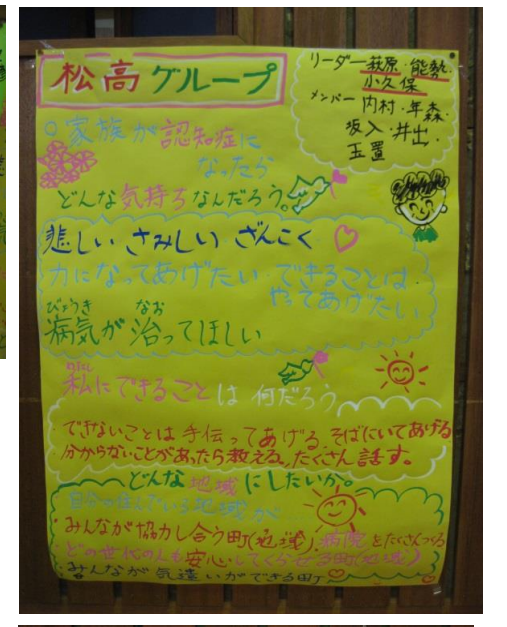 松高グループ
リーダー 萩原・能勢・
小久保
メンバー 内村・年森・
坂入・井出・
玉置
○家族が認知症に
なったら
どんな気持ちなんだろう。
悲しい さみしい ざんこく
力になってあげたい・できることは
やってあげたい
びょうき なお
病気が治ってほしい
私にできることは何だろう
できないことは手伝ってあげる、そばにいてあげる
分からないことがあったら教える、たくさん話す。
どんな地域にしたいか。
自分の住んでいる地域が
・みんなが協力し合う町(地域)、病院をたくさんつくる
どの世代の人も安心してくらせる町(地域)
・みんなが気遣いができる町